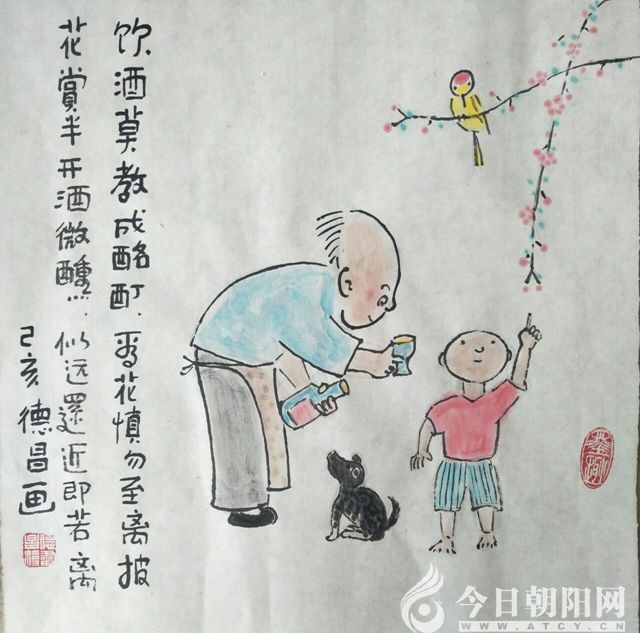 饮酒莫教成酩酊.看花慎勿至离披
花賞半开酒微醺...似远還近即若离
己亥德昌画
今日朝阳网
WWW.ATCY.CN